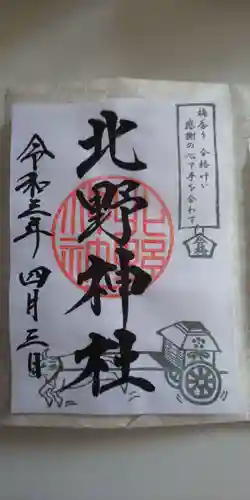 梅香り 合格叶い
感謝の心で手を合わす
合格
北野神社
令和三年 四月三日